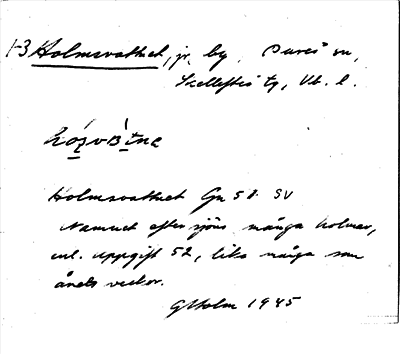 1-3 Holmsvattnet, jr. by, Bureå sn,
Skellefteå tg, Vb. l.
Holmsvattnet Gn 58 SV
Namnet efter sjöns många holmar,
enl. uppgift 52, lika många som
årets veckor.
GHolm 1945